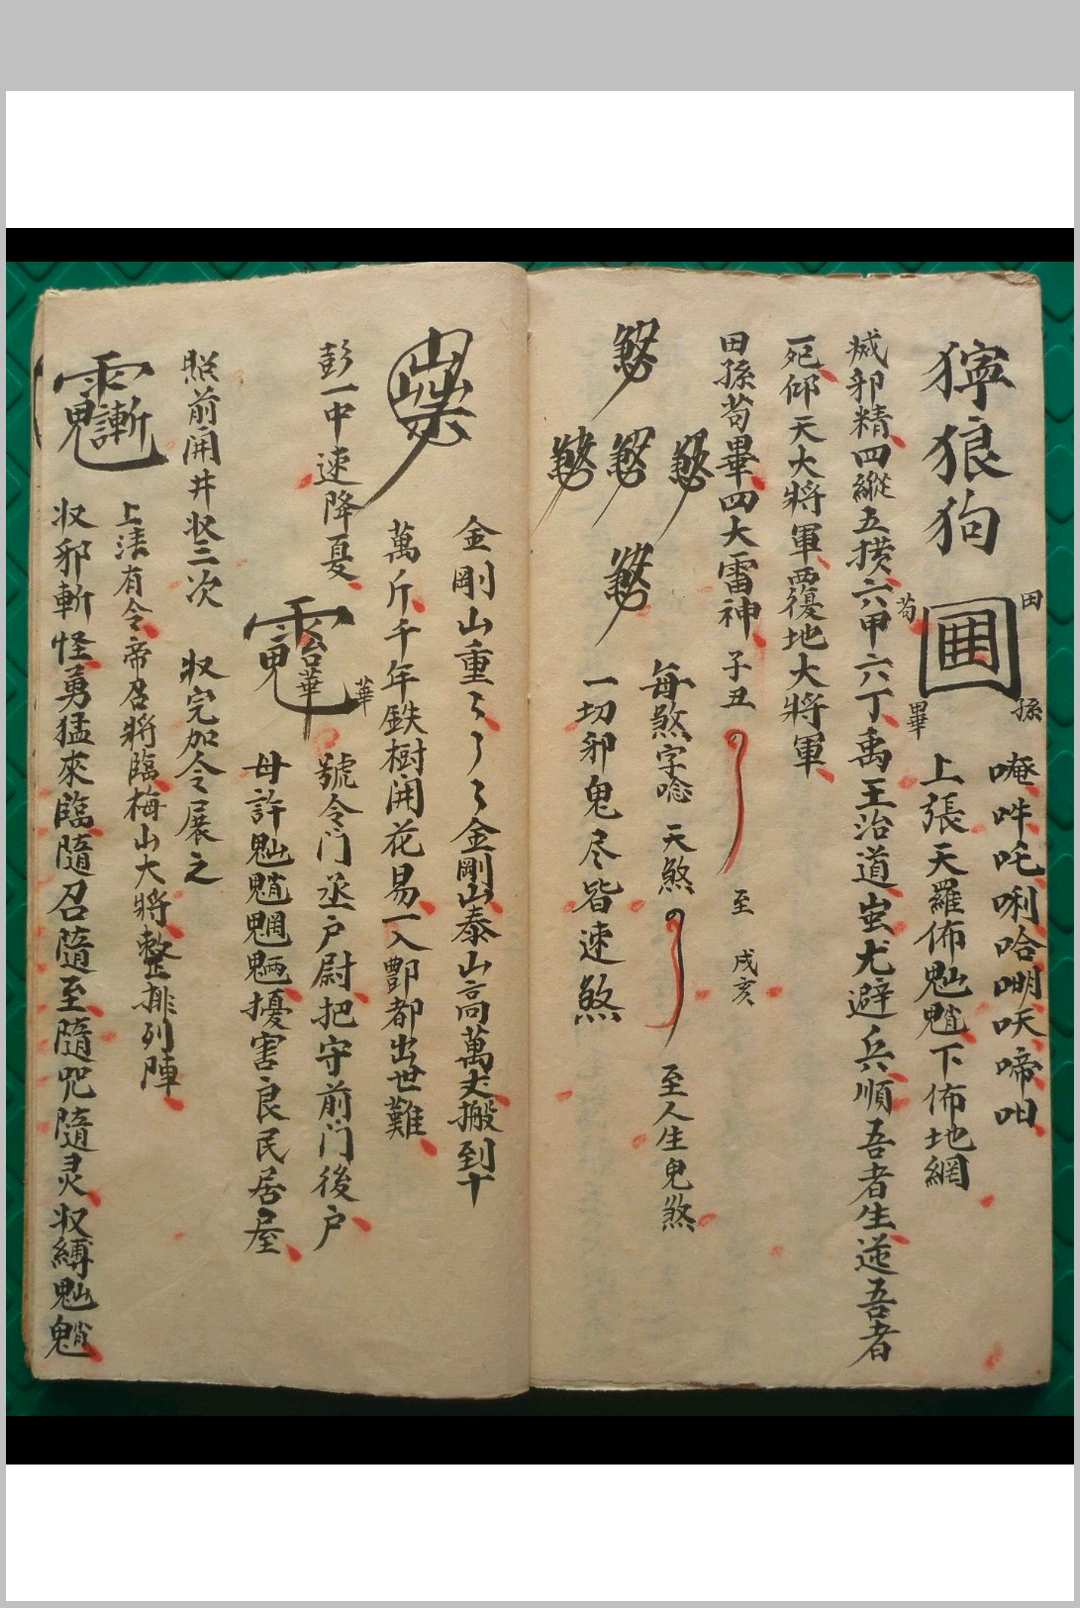 獰狼狗
田
孫
荀
畢
唵吽吒唎哈
啼呾
上張天羅佈魀魈下佈地網
滅邪精四縱五横六甲六丁禹王治道蚩尤避兵順吾者生逆吾者
死仰天大將軍覆地大將軍
田孫荀畢四大雷神子丑
至
戌亥
每煞字唸
天煞
至人生鬼煞
一切邪鬼尽皆速煞
金剛山重
金剛山泰山高萬丈搬到十
萬斤千年鉄樹開花易一入酆都出世難
彭一中速降憂
華
號令门丞户尉把守前门後户
母許魀魈魍魎擾害良民居屋
照前開井收三次
收完加令展之
上清有令帝召將臨梅山大將整排列陣
收邪斬怪勇猛來臨隨召隨至隨咒隨灵收縛魀魈